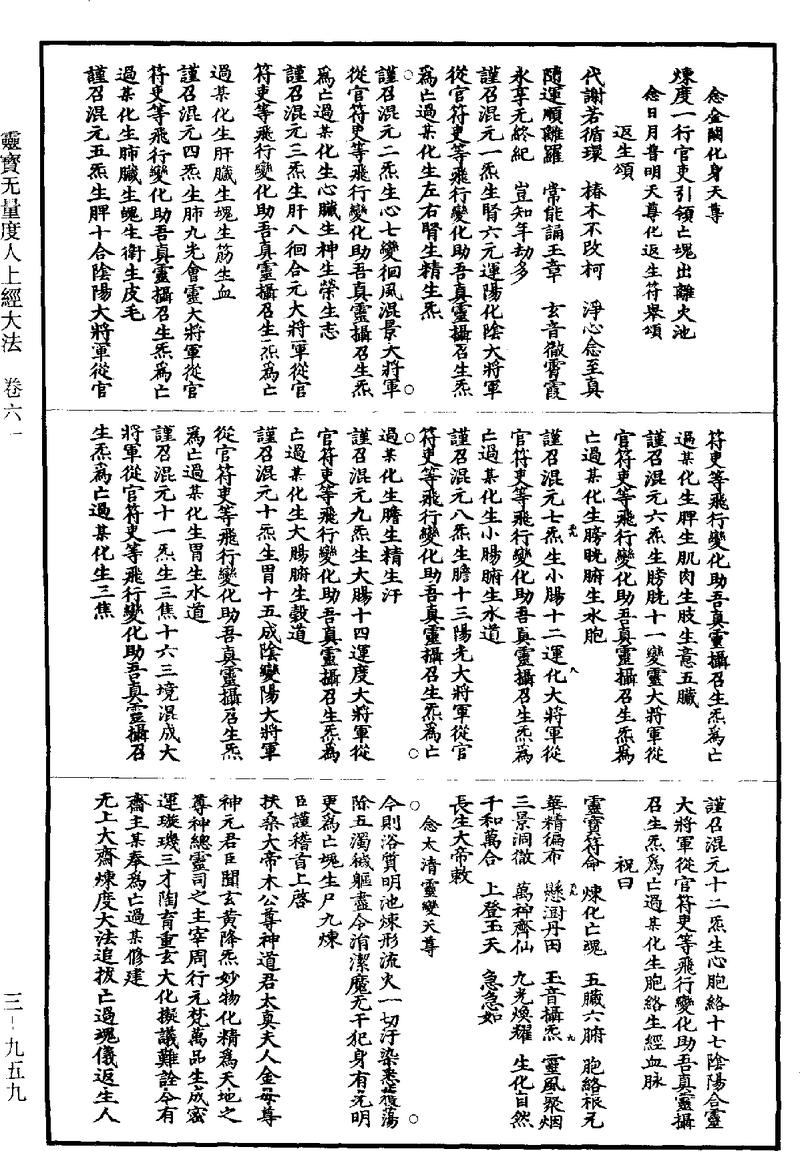 念金闕化身天尊
煉度一行官吏引領亡魂出離火池
念日月普明天尊化返生符舉頌
返生頌
代謝若循環　椿木不改柯　淨心念至真
隨運順離羅　常能誦玉章　玄音徹霄霞
永享无終紀　豈知年劫多
謹召混元一炁生腎六元運陽化陰大將軍
從官符吏等飛行變化助吾真靈攝召生炁
爲亡過某化生左右腎生精生炁
謹召混元二炁生心七變徊風混景大將軍
從官符吏等飛行變化助吾真靈攝召生炁
爲亡過某化生心臟生神生榮生志
謹召混元三炁生肝八徊合元大將軍從官
符吏等飛行變化助吾真靈攝召生炁爲亡
過某化生肝臟生魂生筋生血
謹召混元四炁生肺九光會靈大將軍從官
符吏等飛行變化助吾真靈攝召生炁爲亡
過某化生肺臟生魄生衛生皮毛
謹召混元五炁生脾十合陰陽大將軍從官
符吏等飛行變化助吾真靈攝召生炁爲亡
過某化生脾生肌肉生肢生意五臟
謹召混元六炁生膀胱十一變靈大將軍從
官符吏等飛行變化助吾真靈攝召生炁爲
亡過某化生膀胱腑生水胞
謹召混元七炁生小腸十二運化大將軍從
官符吏等飛行變化助吾真靈攝召生炁爲
亡過某化生小腸腑生水道
謹召混元八炁生膽十三陽光大將軍從官
符吏等飛行變化助吾真靈攝召生炁爲亡
過某化生膽生精生汗
謹召混元九炁生大腸十四運度大將軍從
官符吏等飛行變化助吾真靈攝召生炁爲
亡過某化生大腸腑生穀道
謹召混元十炁生胃十五成陰變陽大將軍
從官符吏等飛行變化助吾真靈攝召生炁
爲亡過某化生胃生水道
謹召混元十一炁生三焦十六三境混成大
將軍從官符吏等飛行變化助吾真靈攝召
生炁爲亡過某化生三焦
謹召混元十二炁生心胞絡十七陰陽合靈
大將軍從官符吏等飛行變化助吾真靈攝
召生炁爲亡過某化生胞絡生經血脉
祝曰
靈寶符命　煉化亡魂　五臟六腑　胞絡根元
華精徧布　懸澍丹田　玉音攝炁　靈風聚烟
三景洞徹　萬神齊仙　九光煥耀　生化自然
千和萬合　上登玉天　急急如
長生大帝敕
念太清靈變天尊
今則浴質明池煉形流火一切汙染悉蕩
除五濁穢軀盡令消潔魔无干犯身有光明
更爲亡魂生尸九煉
臣謹稽首上啓
扶桑大帝木公尊神道君太真夫人金母尊
神元君臣聞玄黃降炁妙物化精爲天地之
尊神總靈司之主宰周行元梵萬品生成密
運璇璣三才陶育重玄大化擬議難詮今有
齋主某奉爲亡過某修建
无上大齋煉度大法追拔亡過魂儀返生人
靈寶无量度人上經大法　卷六一
三－九五九